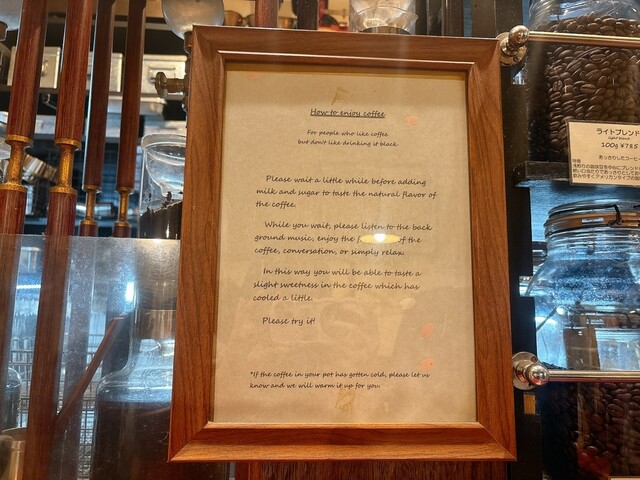 How to enjoy coffee
For people who like coffee
but don't like drinking it black
Please wait a little while before adding
milk and sugar to taste the natural flavor of
the coffee.
While you wait, please listen to the back
ground music, enjoy the of the
coffee, conversation, or simply relax.
In this way you will be able to taste a
slight sweetness in the coffee which has
cooled a little.
Please try it!
*If the coffee in your pot has gotten cold, please let us
know and we will warm it up for you.
ライトブレンド
light blend
100g ¥785